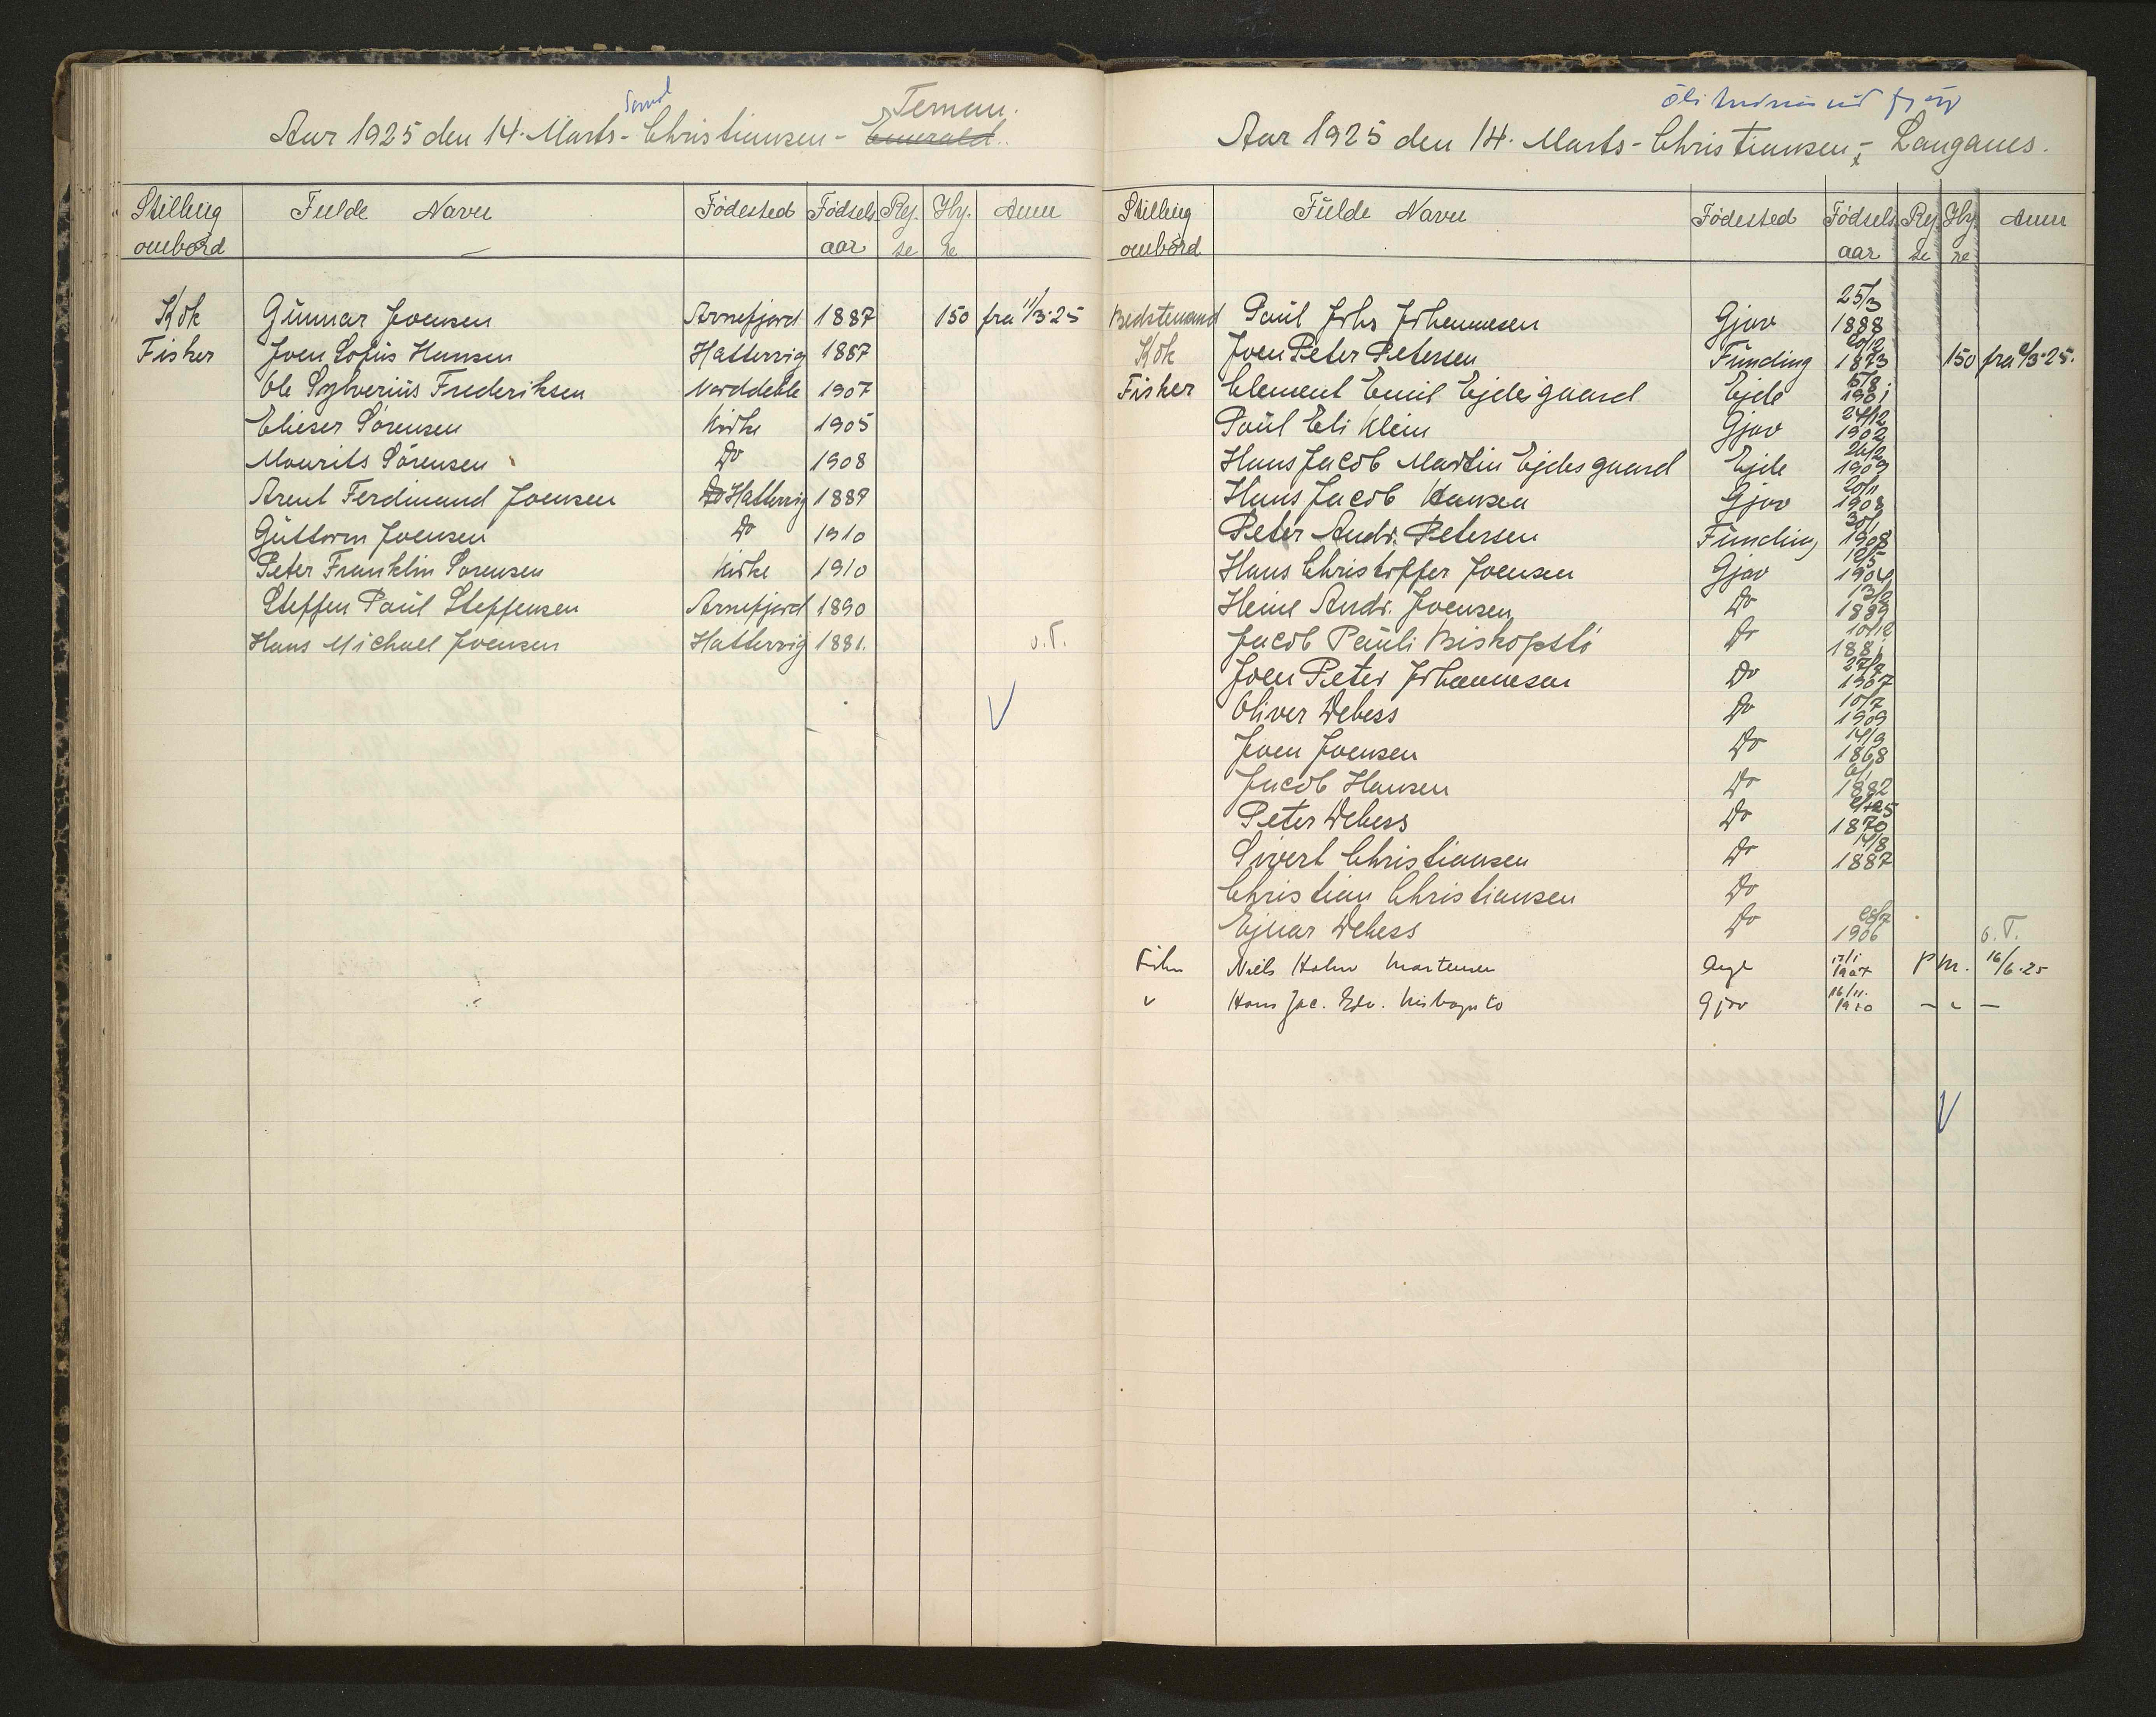 Sand
Ternan.
Aar 1925 den 14. Marts - Christiansen - Emerald.
Stilling Fulde Navn Fødested Fødsels Rej. Hy. Anm
ombord aar se re
Kok Gunnar Joensen Arnefjord 1887 150 fra 11/3-25
Fisker Joen Sofus Hansen Hattervig 1887
Ole Sylverius Frederiksen Norddeble 1907
Elieser Sørensen Kirke 1905
Mourits Sørensen Do 1908
Arent Ferdinand Joensen Do Hattervig 1887
Guttorm Joensen Do 1910
Peter Franklin Sørensen Kirke 1910
Steffen Paul Steffensen Arnefjord 1890
Hans Michael Joensen Hattervig 1881. o.T.
Aar 1925 den 14. Marts - Christiansen - Langanes.
Stilling Fulde Navn Fødested Fødsels Rej. Hy. Anm
ombord aar se re
Bedstemand Paul Johs Johannesen Gjov 25/3 1888
Kok Joen Peter Petersen Funding 1873 150 fra 3-25.
Fisker Clement Emil Ejdesgaard Ejde 15/8 1901
Paul Eli Klein Gjov 24/12 1902
Hans Jacob Martin Ejdesgaard Ejde 1909
Hans Jacob Hansen Gjov 20/11 1908
Peter Andr. Petersen Funding 1908
Hans Christoffer Joensen Gjov 1904
Heine Andr. Joensen Do 13/2 1889
Jacob Pauli Biskopstö Do 10/12 1881
Joen Peter Johannesen Do 1907
Oliver Debess Do 10/7 1909
Joen Joensen Do 14/9 1868
Jacob Hansen Do 6/1 1882
Peter Debess Do 1870
Sivert Christiansen Do 14/8 1887
Christian Christiansen Do
Ejnar Debess Do 28/7 1906 o.T.
Niels Holm Mortensen 17/1 1907 P M. 16/6-25
Hans Jac. Edv. Gjov 16/11. 1910 - " -